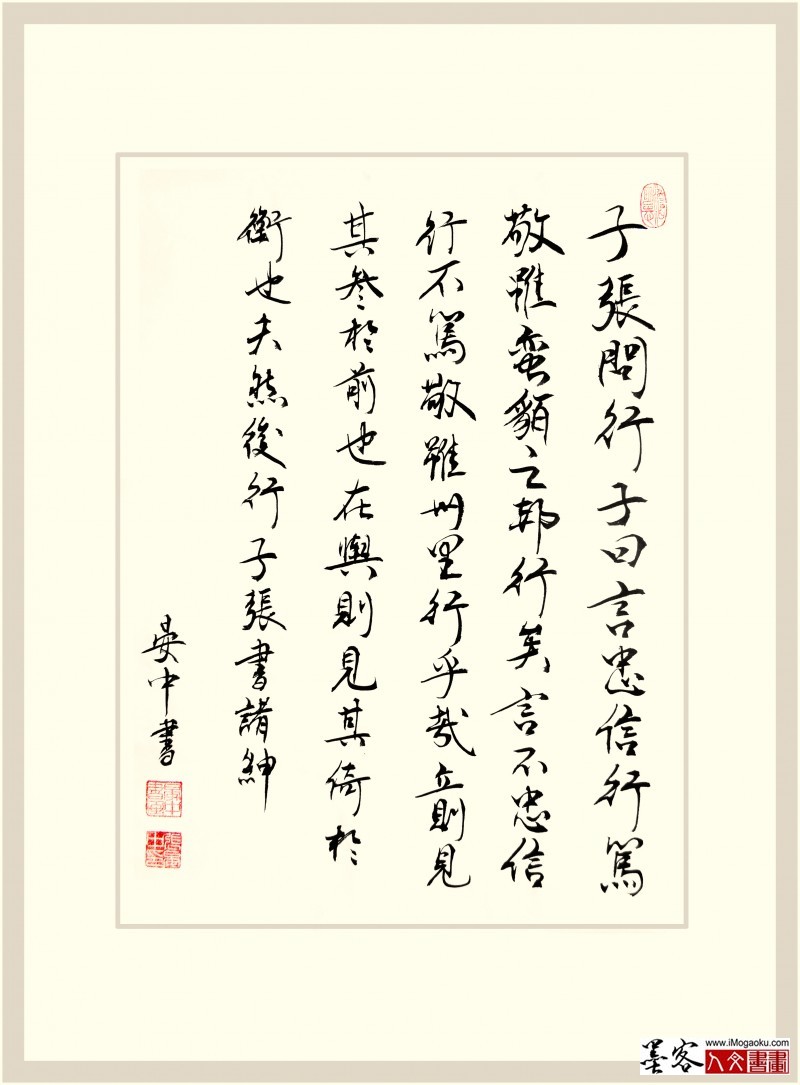 子張問行子曰言忠信行篤
敬雖蠻貊之邦行矣言不忠信
行不篤敬雖州里行乎哉立則見
其參於前也在輿則見其倚於
衡也夫然後行子張書諸紳
晏中書
www.iMogaoku.com
墨客
人文書畫